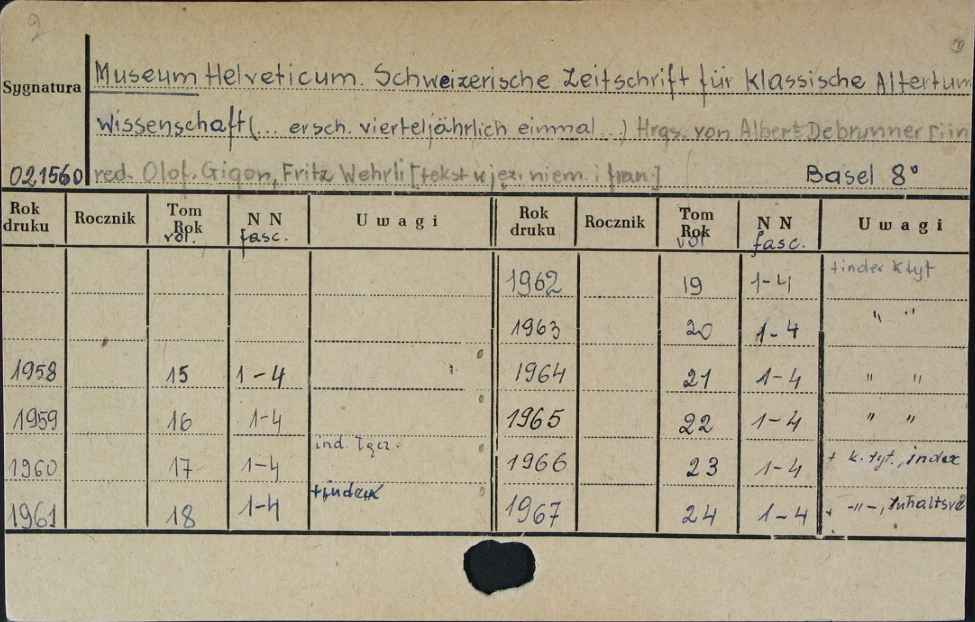 2
Sygnatura
Museum Helveticum. Schweizerische Zeitschrift für Klassische Altertum
Wissenschaft (... ersch. vierteljährlich einmal ...) Hrgs. von Albert Debrunner [i in
021560 red. Olof. Gigon, Fritz Wehrli [tekst w jęz. niem. i fran.] Basel 8°
Rok druku Rocznik Tom Rok vol. NN fasc. Uwagi Rok druku Rocznik Tom Rok vol NN fasc. Uwagi
1962 19 1-4 + index k tyt
1963 20 1-4 " "
1958 15 1-4 1964 21 1-4 " "
1959 16 1-4 1965 22 1-4 " "
1960 17 1-4 ind. 1966 23 1-4 + k. tyt., index
1961 18 1-4 + index 1967 24 1-4 + -"-, Inhaltsve